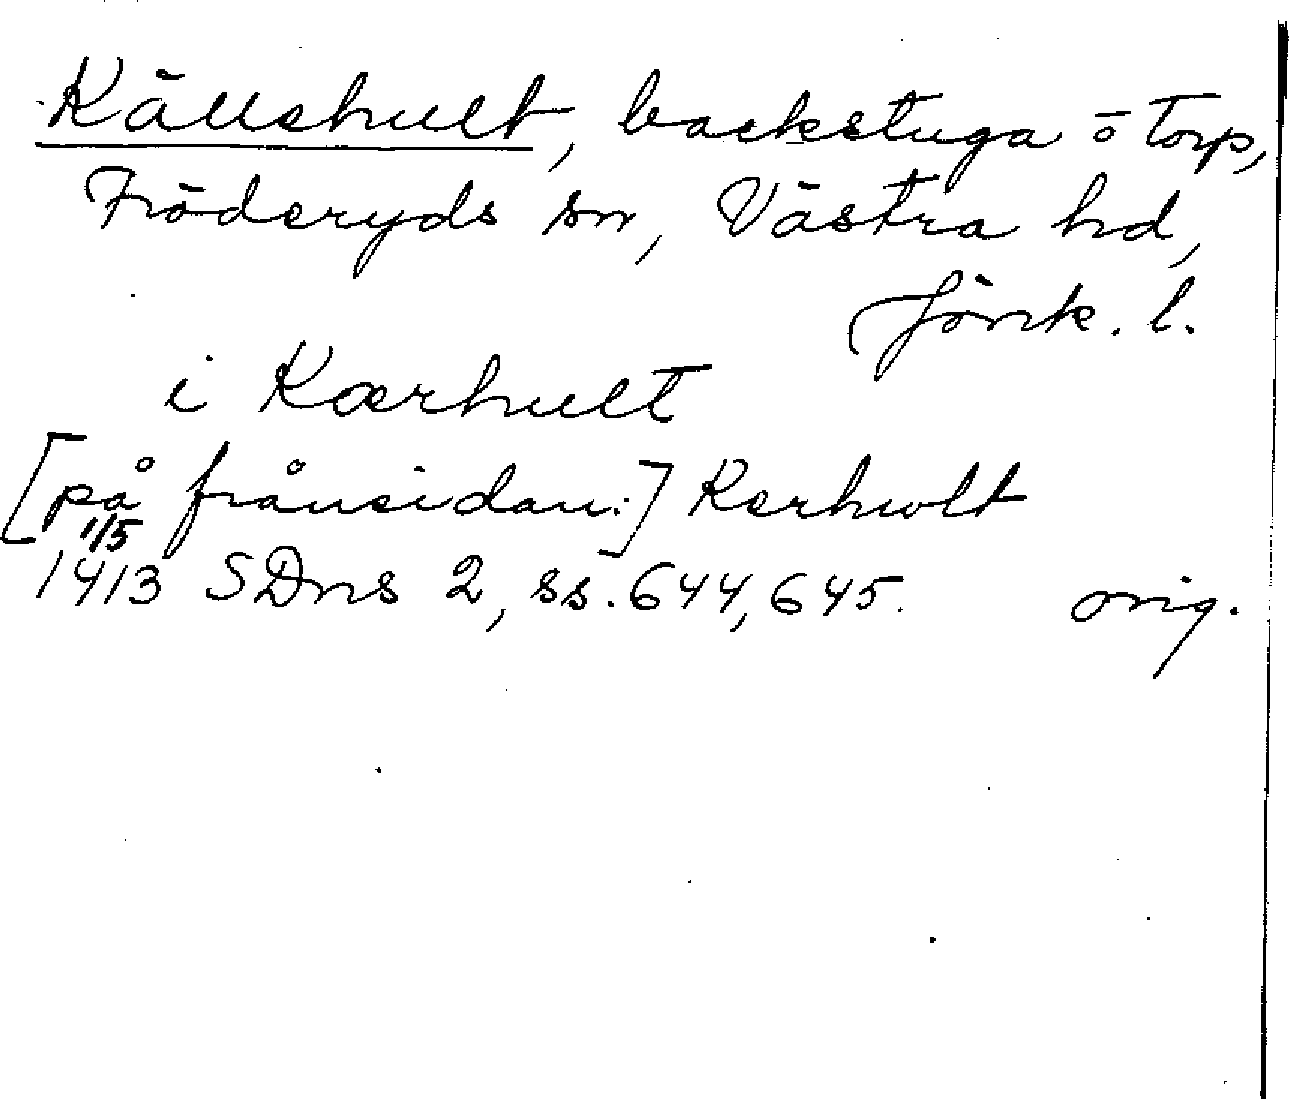 Källshult, backstuga o torp,
Fröderyds sn, Västra hd,
Jönk. l.
i Kærhult
[på frånsidan:] Kerhwlt
1/5
1413 SDns 2, ss. 644, 645. orig.